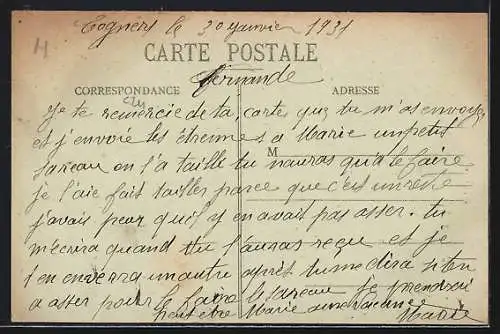 Cogners le 30 janvier 1931
4
CARTE POSTALE
Fernande
CORRESPONDANCE ADRESSE
Je te remercie de ta cartes que tu m'as envoyer
et j'envoie les étrennes a Marie un petit
M
sareau on l'a taille tu nauras qu'a le faire
je l'aie fait tailler parce que c'est un reste
j'avais peur qu'il y en avait pas asser. tu
m'ecrira quand tu l'auras reçu et je
t'en enverra un autre après tu me dira si ten
a asser pour le faire le sareau je prendrai
peut être Marie
Marie